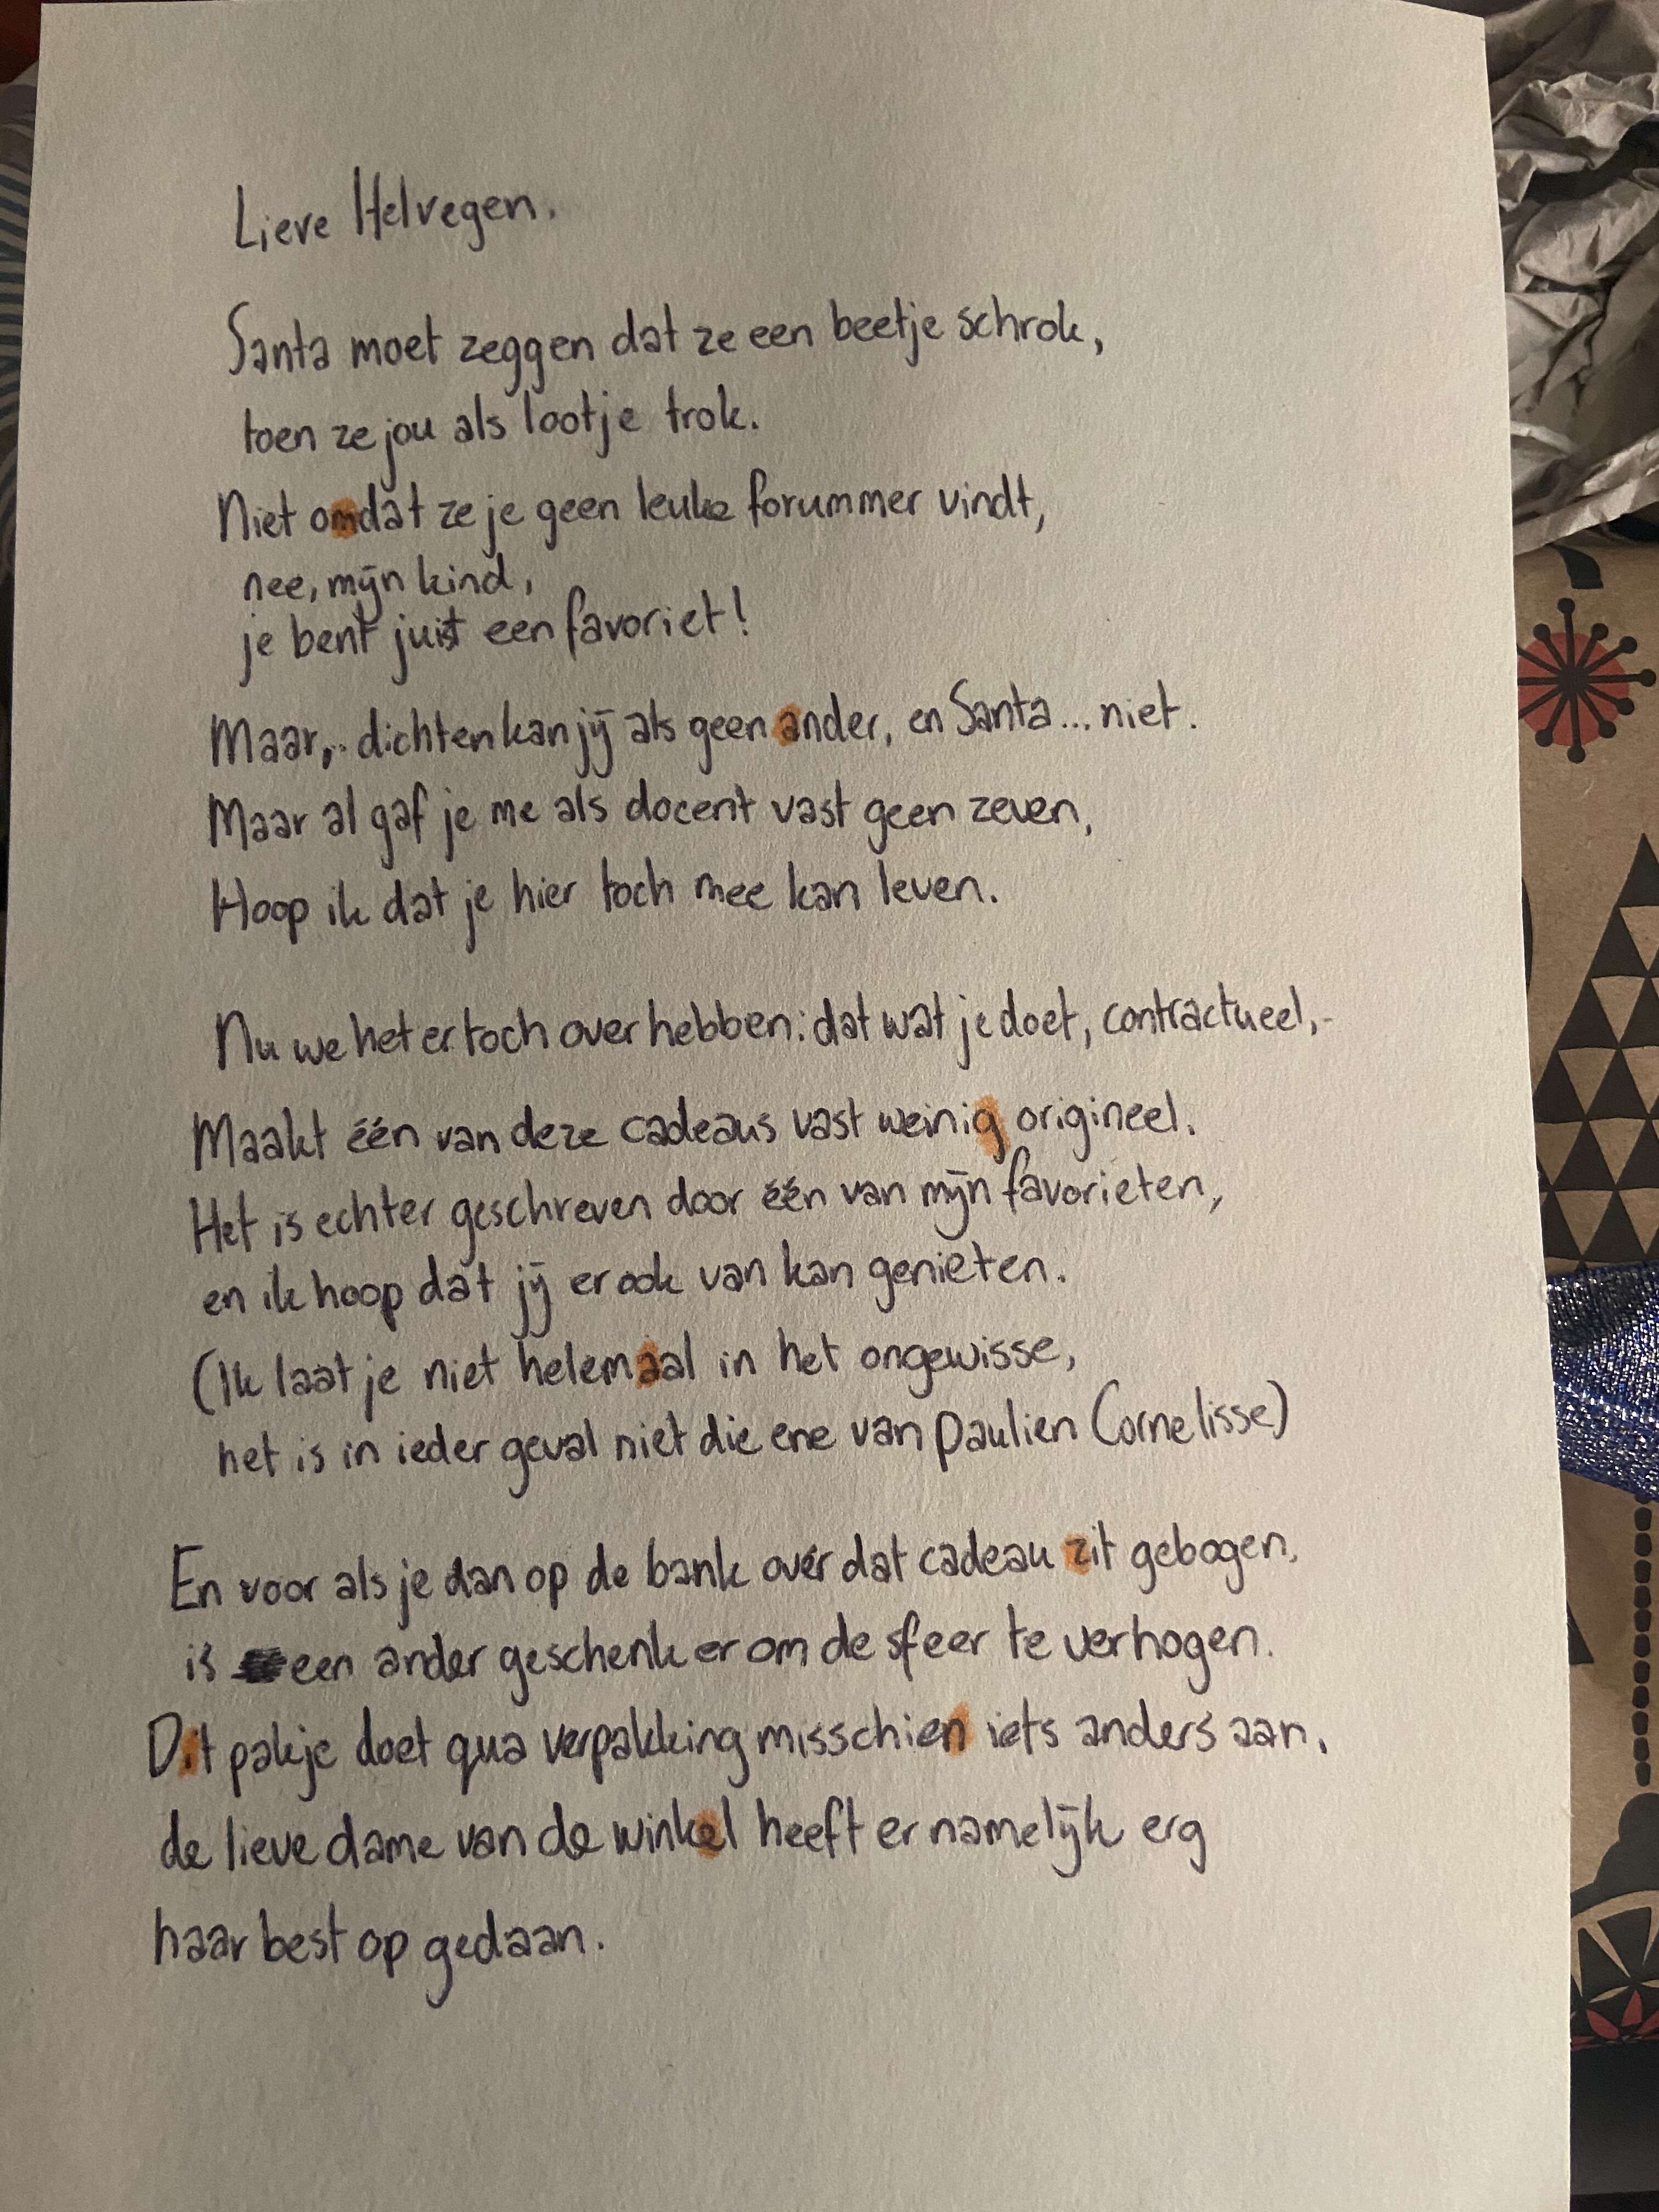 Lieve Helvegen.
Santa moet zeggen dat ze een beetje schrok,
toen ze jou als lootje trok.
Niet omdat ze je geen leuke forummer vindt,
nee, mijn kind,
je bent juist een favoriet!
Maar,.. dichten kan jij als geen ander, en Santa... niet.
Maar al gaf je me als docent vast geen zeven,
Hoop ik dat je hier toch mee kan leven.
Nu we het er toch over hebben: dat wat je doet, contractueel,-
Maakt één van deze cadeaus vast weinig origineel.
Het is echter geschreven door één van mijn favorieten,
en ik hoop dat jij er ook van kan genieten.
(Ik laat je niet helemaal in het ongewisse,
het is in ieder geval niet die ene van Paulien Cornelisse)
En voor als je dan op de bank over dat cadeau zit gebogen,
is een ander geschenk er om de sfeer te verhogen.
Dit pakje doet qua verpakking misschien iets anders aan,
de lieve dame van de winkel heeft er namelijk erg
haar best op gedaan.